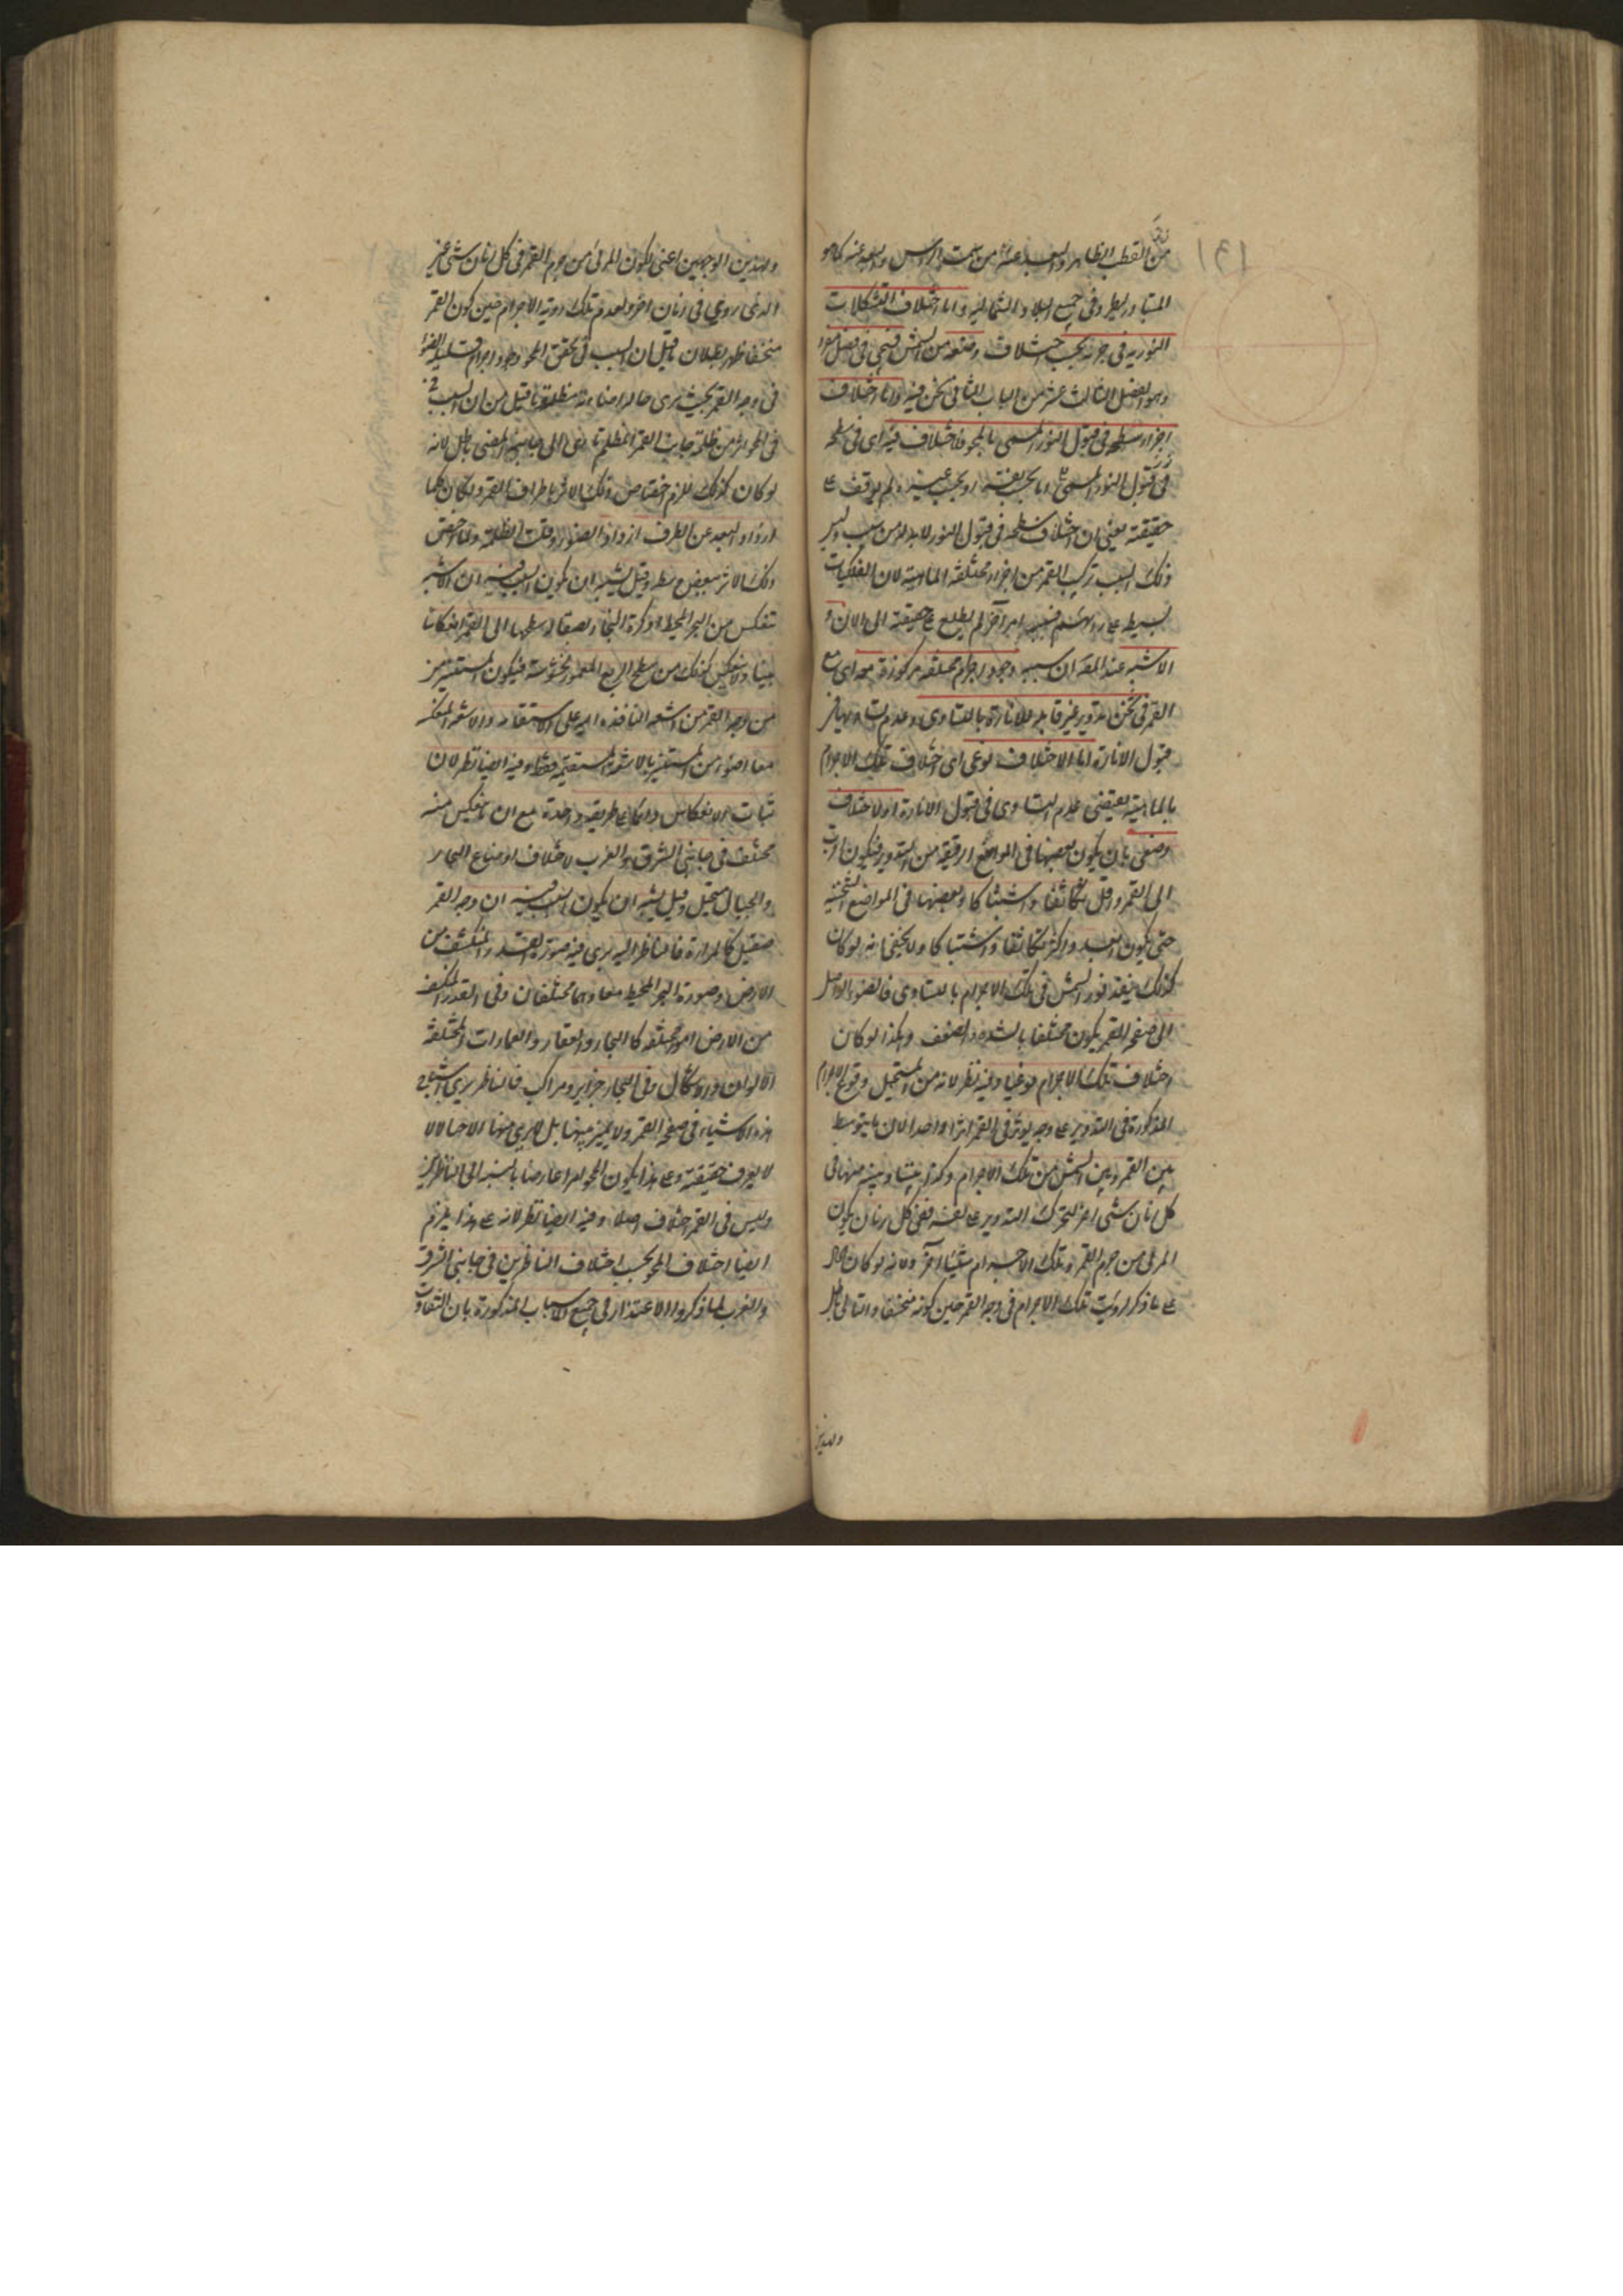 من القطب الظاهر والبعد عنه من سمت الراس وبعده عنه كما هو
المتبادر يظهر وفي جميع البلاد الشمالية واما اختلاف التشكلات
النورية في جرمه بحسب اختلاف وضعه من الشمس فيجي في فصل مفرد
وهو الفصل الثالث عشر من الباب الثاني نحن فيه واما اختلاف
اجزاء سطحه في قبول النور المسمى بالمحو فلاختلاف فيه اى في سطحه
في قبول النور المسمى اما بحسب نفسه او بحسب غيره ولم يوقف على
حقيقته يعني ان اختلاف سطحه في قبول النور لابد له من سبب وليس
ذلك السبب تركب القمر من اجزاء مختلفة الماهية لان الفلكيات
بسيطة على رايهم فسببه امر آخر لم يطلع على حقيقته الى الان و
الاشبه عند المصـ ان سببه وجود اجرام مختلفة مركوزة معه اى مع
القمر في ثخن تدويره غير قابلة للانارة بالتساوى وعدم تساويها في
قبول الانارة اما لاختلاف نوعى اى اختلاف تلك الاجرام
بالماهية يقتضى عدم التساوى في قبول الانارة او لاختلاف
وضعى بان يكون بعضها في المواضع الرقيقة من التدوير فيكون اقرب
الى القمر واقل تكاثفا واشتباكا وبعضها في المواضع الثخينة
حتى يكون ابعد واكثر تكاثفا واشتباكا ولا يخفى انه لو كان
كذلك ينفذ نور الشمس في تلك الاجرام بالتساوى فالضوء الواصل
الى صفحة القمر يكون مختلفا بالشدة والضعف وهكذا لو كان
اختلاف تلك الاجرام نوعيا وفيه نظر لانه من المستحيل وقوع الاجرام
المذكورة في التدوير على وجه يوثر في القمر اثرا واحدا لان ما يتوسط
بين القمر وبين الشمس من تلك الاجرام وكذا بيننا وبينه منها في
كل زمان شئ اخر لتحرك التدوير على نفسه ففي كل زمان يكون
المرئى من جرم القمر وتلك الاجسام شيئا آخر ولانه لو كان الامر
على ما ذكر لرؤيت تلك الاجرام في وجه القمر حين كونه منخسفا والتالى باطل
وبهذين
وبهذين الوجهين اعنى لكون المرئى من جرم القمر في كل زمان شئ غير
الذى روى في زمان اخر ولعدم تلك روية الاجرام حين كون القمر
منخسفا ظهر بطلان ما قيل ان السبب في تحقق المحو وجود اجرام قليلة الضوء
في وجه القمر بحيث يرى حال اضاءته مظلمة وما قيل من ان السبب
في المحو اثر من ظلمة جانب القمر المظلم تادى الى جانبه المضئ باطل لانه
لو كان كذلك للزم اختصاص ذلك الاثر باطراف القمر ولكان كلما
ازداد البعد عن الطرف ازداد الضوء وقلت الظلمة ولما اختص
ذلك الاثر ببعض وسطه وقيل يشبه ان يكون السبب فيه ان الاشعة
تنعكس من البحر المحيط لا وكرة البخار لصقالة سطحها الى القمر انعكاسا
بينا ولا ينعكس كذلك من سطح الربع المعمور لخشونته فيكون المستنير من
من وجه القمر من الاشعة النافذة اليه على الاستقامة والاشعة المنعكسة
معا اضوء من المستنير بالاشعة المستقيمة فقط وفيه ايضا نظر لان
ثبات الانعكاس دائما على طريقة واحدة مع ان ما ينعكس منه
مختلف في جانبى الشرق والغرب لاختلاف اوضاع البحار
والجبال مستحيل وقيل يشبه ان يكون السبب فيه ان وجه القمر
صقيل كالمراة فالناظر اليه يرى فيه صورة القدر المنكشف من
الارض وصورة البحر المحيط معا وهما مختلفان وفي القدر المنكشف
من الارض امور مختلفة كالبحار والقفار والعمارات المختلفة
الالوان والاشكال وفي البحار جزاير ومراكب فالناظر يرى اشباح
هذه الاشياء في صفحة القمر ولا يميز بينها بل لا يرى منها الا خيالا
لا يعرف حقيقته وعلى هذا يكون المحو امرا عارضا بالنسبة الى الناظرين
وليس في القمر اختلاف اصلا وفيه ايضا نظر لانه على هذا يلزم
ايضا اختلاف المحو بحسب اختلاف الناظرين في جانبى الشرق
والغرب لما ذكروا الاعتذار في جميع الاسباب المذكورة بان التفاوت